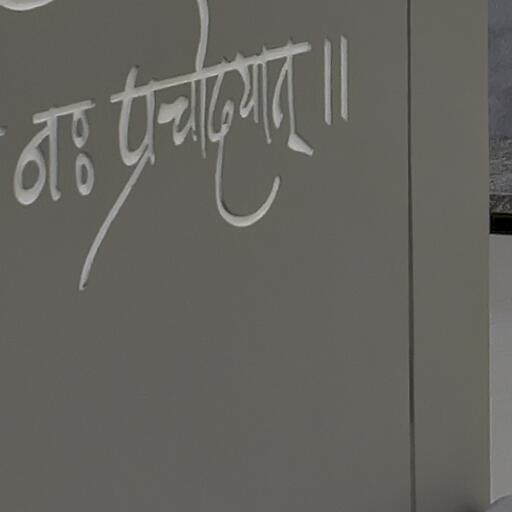 नः प्रचोदयात् ॥